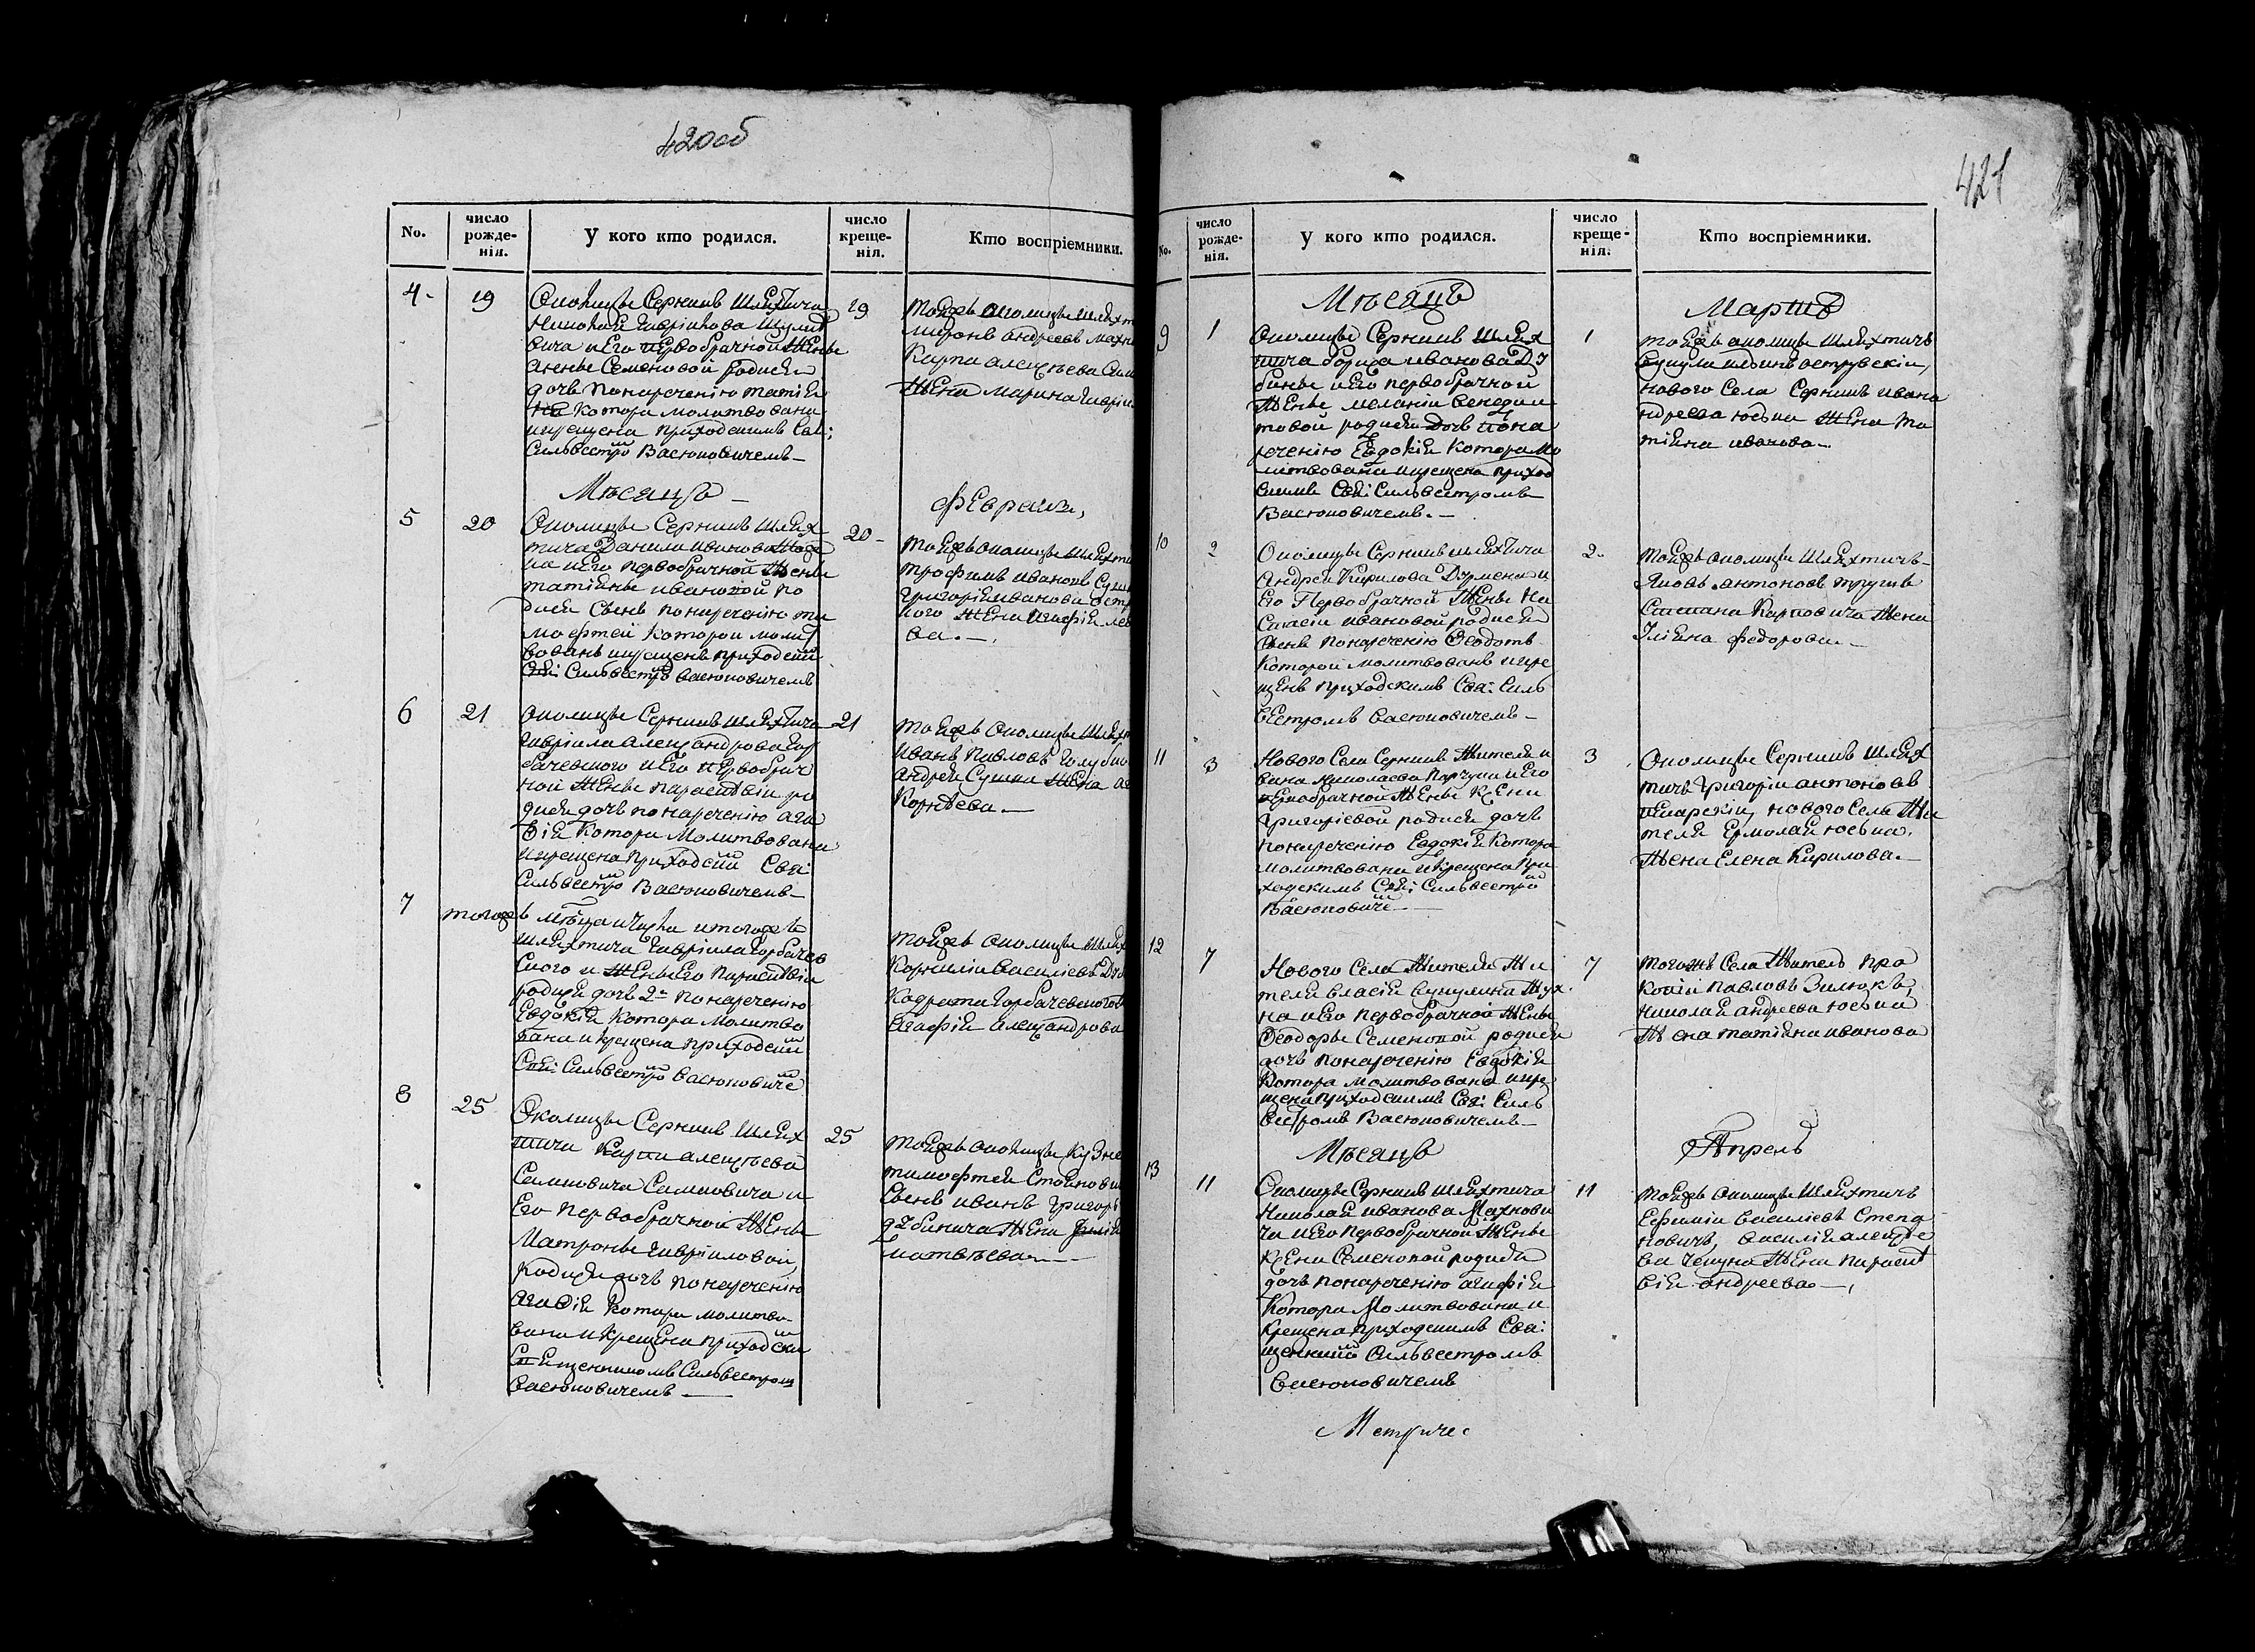 420об
No.
число рожде-нія.
У кого кто родился.
число креще-нія.
Кто воспріемники.
4.
19
Околицы Серкшив Шляхтича
Николая Гавріилова
вича и Его первобрачной Женѣ
Семеновой родися
дочь по нареченію Татія
на котора молитвована
и крещена приходскимъ Свя:
Силвестро Васюковичемъ
19
Тойжъ околицы шляхт
Миронъ Андреевъ Махн
Карпа Алексѣева Сам
Жена Марина Гавріи
Мѣсяцъ
Февраля,
5
20
Околицы Серкшив Шлях
тича Данила Иванова
и Его первобрачной Женѣ
Татіянѣ Ивановой ро
дися Сынъ по нареченію Ти
мофтей которой молит
вованъ и крещенъ приходскій
Свя: Силвестро Васюковичемъ
20
Тойжъ околицы шляхти
Трофимъ Ивановъ Суш
Григорія Иванова Остр
ного Жена Агафія Лев
ва.
6
21
Околицы Серкшив Шляхтича
Гавріила Александрова Гор
бачевского и Его первобрач
ной Женѣ Параскевіи ро
дися дочь по нареченію Ага
ѳія котора молитвована
и крещена приходскій Свя:
Силвестро Васюковичемъ
21
Тойжъ околицы Шлях
Иванъ Павловъ Голубно
Андрея Сушки Жена Аг
Корнѣева
7
тогожъ мѣсца и числа и тогожъ
шляхтича Гавріила Горбачев
ского и Жены Его Параскевіи
родися дочь 2я по нареченію
Евдокія котора молитво
вана и крещена приходскій
Свя: Силвестро Васюковиче
Тойжъ околицы Шлях
Корнилій Василіевъ Дуб
Кодрата Горбачевского
Агафія Александрова
8
25
Околицы Серкшив Шлях
тича Карпа Алексѣева
Самковича Самковича и
Его первобрачной Женѣ
Матронѣ Гавріиловой
родися дочь по нареченію
Агаѳія котора молитво
вана и крещена приходски
Священникомъ Силвестромъ
Васюковичемъ
25
Тойжъ околицы Кузне
Тимофтей
Сынъ Иванъ Григорь
Дубинича Жена
Матвѣева
421
No.
число рожде-нія.
У кого кто родился.
число креще-нія.
Кто воспріемники.
Мѣсяцъ
Мартъ
9
1
Околицы Серкшив Шлях
тича Бориса Иванова Ду
бины и Его первобрачной
Женѣ Меланіи Бенедик
товой родися Дочь по на
реченію Евдокія Котора мо
литвована и крещена приход
скимъ Свя: Силвестромъ
Васюковичемъ.
1
Тойжъ околицы Шляхтичъ
Островскій,
Нового Села Серкшив Ивана
Андреева Юська Жена Та
тіяна Иванова
10
2
Околицы Серкшив шляхтича
Андрея Кирилова и
Его Первобрачной Женѣ На
стасіи Ивановой родися
Сынъ по нареченію Ѳеодотъ
которой молитвованъ и кре
щенъ приходскимъ Свя: Силь
вестромъ Васюковичемъ
2
Тойжъ околицы Шляхтичъ
Яковъ Антоновъ
Степана Карповича Жена
Уліяна Федорова.
11
3
Нового Села Серкшив Жителя И
вана Николаева и Его
первобрачной Женѣ Ксени
Григоріевой родися дочь
по нареченію Евдокія котора
молитвована и крещена при
ходскимъ Свя: Силвестро
Васюковиче
3
Околицы Серкшив Шлях
тичъ Григорій Антоновъ
нового Села Жи
теля Ермолая Юська
Жена Елена Кирилова.
12
7
Нового Села Жителя Жи
теля Власія
на и Его первобрачной Женѣ
Ѳеодорѣ Семеновой родися
дочь по нареченію Евдокія
Котора молитвована и кре
щена приходскимъ Свя: Силь
вестромъ Васюковичемъ
7
Тогожъ Села Житель Про
копій Павловъ Зилюкъ,
Николая Андреева Юська
Жена Татіяна Иванова
Мѣсяцъ
Апрель
13
11
Околицы Серкшив Шляхтича
Николая Иванова Махнови
ча и Его Первобрачной Женѣ
Ксени Семеновой родися
дочь по нареченію Агафія
Котора Молитвована и
Крещена приходскимъ Свя:
щенникомъ Силвестромъ
Васюковичемъ
11
Тойжъ околицы Шляхтичъ
Ефимій Василіевъ Степа
новичъ, Василія Алексѣе
ва Жена Параске
вія Андреева
Метриче